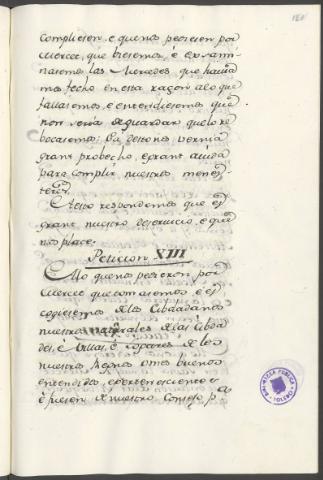 complieren, e quenos pedieren por
Merced, que biesemos, é exsami-
nasemos las Mercedes que haviamos
fecho en esta razon alo que
fallasemos, e entendiesemos que
non seria deguardar quelo re-
bocasemos: Ca desto nos vernia
grant probecho, egrant aiuda
para complir nuestros menes-
teres.
A esto respondemos que es
grant nuestro deservicio e que
nos place.
Peticion XIII
Alo quenos pedieron por
Merced que tomasemos é es-
cogiesemos delos Cibdadanos
nuestros naturales delas Cibda-
des, é Villas, é Logares de los
nuestros Regnos omes buenos
entendidos, e pertenescientes
é fuesen de nuestro Consejo, pa
BIBLIOTECA PUBLICA
TOLEDO